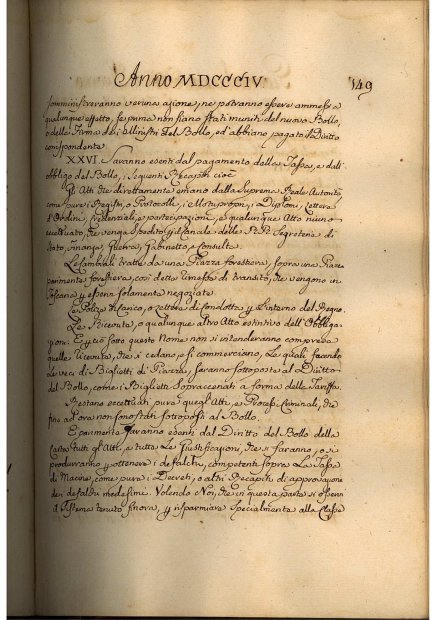 Anno MDCCCIV
149
somministreranno veruna azione, ne potranno essere ammessi a
qualunque effetto, se prima non siano stati muniti del nuovo Bollo,
o delle Firme dei Ministri del Bollo, ed abbiano pagato il Diritto
corrispondente.
XXVI. Saranno esenti dal pagamento della Tassa, e dall'
obbligo del Bollo, i seguenti Recapiti cioè
Gli Atti che direttamente emano dalla Suprema Reale Autorità
come pure i Registri, e Protocolli, i Motuproprj, i Diplomi, Lettere
d'Ordini, credenziali, e partecipazioni, e qualunque Atto niuno
eccettuato che venga spedito per il Canale delle RR. Segreterie di
Stato, Finanze, Guerra, Gabinetto, e Consulta.
Le Cambiali tratte da una Piazza forestiera, sopra una Piazza
parimente forestiera, così dette rimesse di transito, che vengono in
Toscana per essere solamente negoziate.
Le Polize di Carico, o Lettere di Condotta per l'interno del Regno.
Le Ricevute, o qualunque altro Atto estintivo dell'Obbliga-
zioni: E perciò sotto questo Nome non si intenderanno comprese
quelle Ricevute, che si cedano, e si commerciano, Le quali facendo
le veci di Biglietti di Piazza, saranno sottoposte al Diritto
del Bollo, come i Biglietti Sopraccennati a forma delle Tariffe.
Restano eccettuati pure quegli Atti, e Processi Criminali, che
fino ad ora non sono stati sottoposti al Bollo.
E parimente saranno esenti dal Diritto del Bollo della
Carta tutti gli Atti, e tutte Le Giustificazioni, che si faranno, o si
produrranno per ottenere i defalchi, competenti sopra La Tassa
di Macine, come pure i Decreti, o altri Recapiti di approvazione
dei defalchi medesimi. Volendo Noi, che in questa parte si osservi
il sistema tenuto finora, per risparmiare specialmente alla Classe